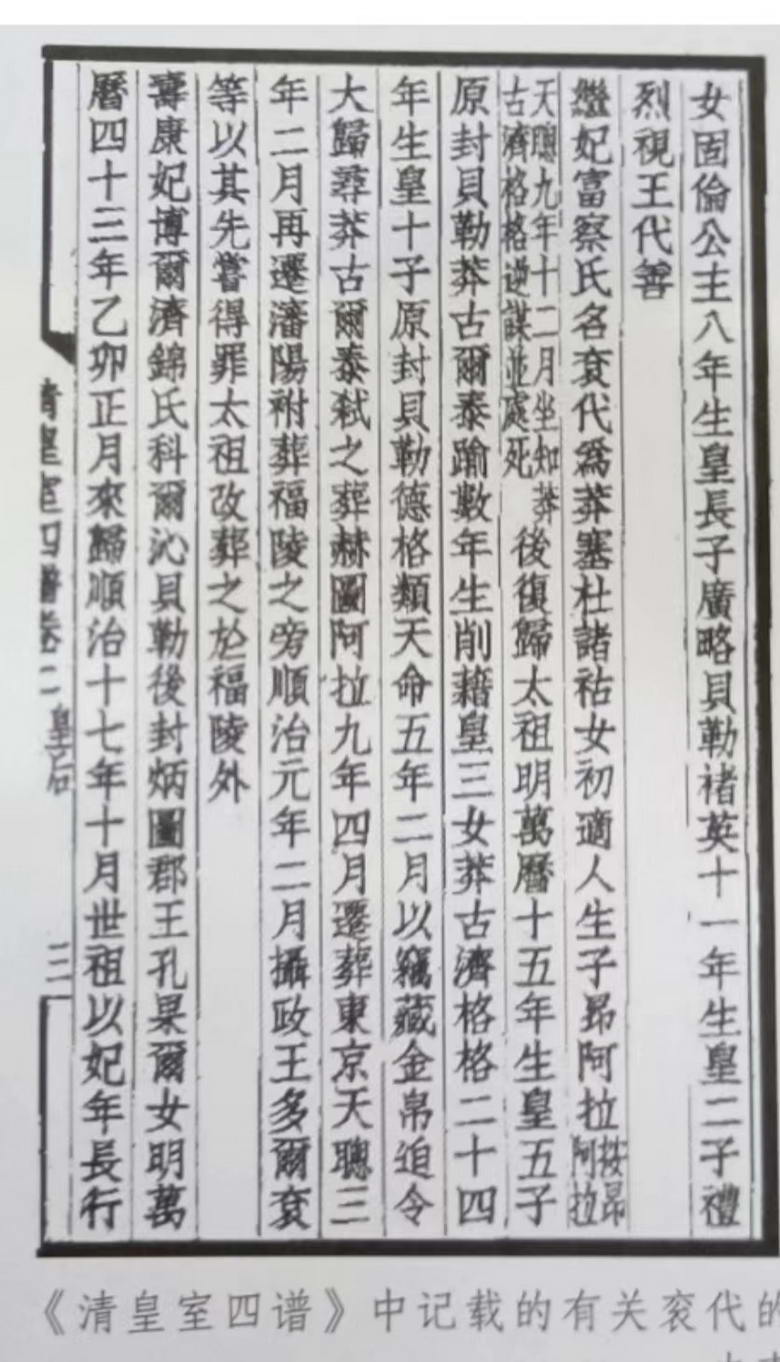 女固倫公主八年生皇長子廣略貝勒褚英十一年生皇二子禮
烈視王代善
繼妃富察氏名袞代為莽塞杜諸祜女初適人生子昂阿拉按昂阿拉
天聰九年十二月坐知莽古濟格格逆謀並處死後復歸太祖明萬曆十五年生皇五子
原封貝勒莽古爾泰踰數年生削籍皇三女莽古濟格格二十四
年生皇十子原封貝勒德格類天命五年二月以竊藏金帛迫令
大歸尋莽古爾泰弒之葬赫圖阿拉九年四月遷葬東京天聰三
年二月再遷瀋陽祔葬福陵之旁順治元年二月攝政王多爾袞
等以其先嘗得罪太祖改葬之於福陵外
壽康妃博爾濟錦氏科爾沁貝勒後封炳圖郡王孔果爾女明萬
曆四十三年乙卯正月來歸順治十七年十月世祖以妃年長行
清皇室四譜卷二 皇后 三
《清皇室四谱》中记载的有关衮代的